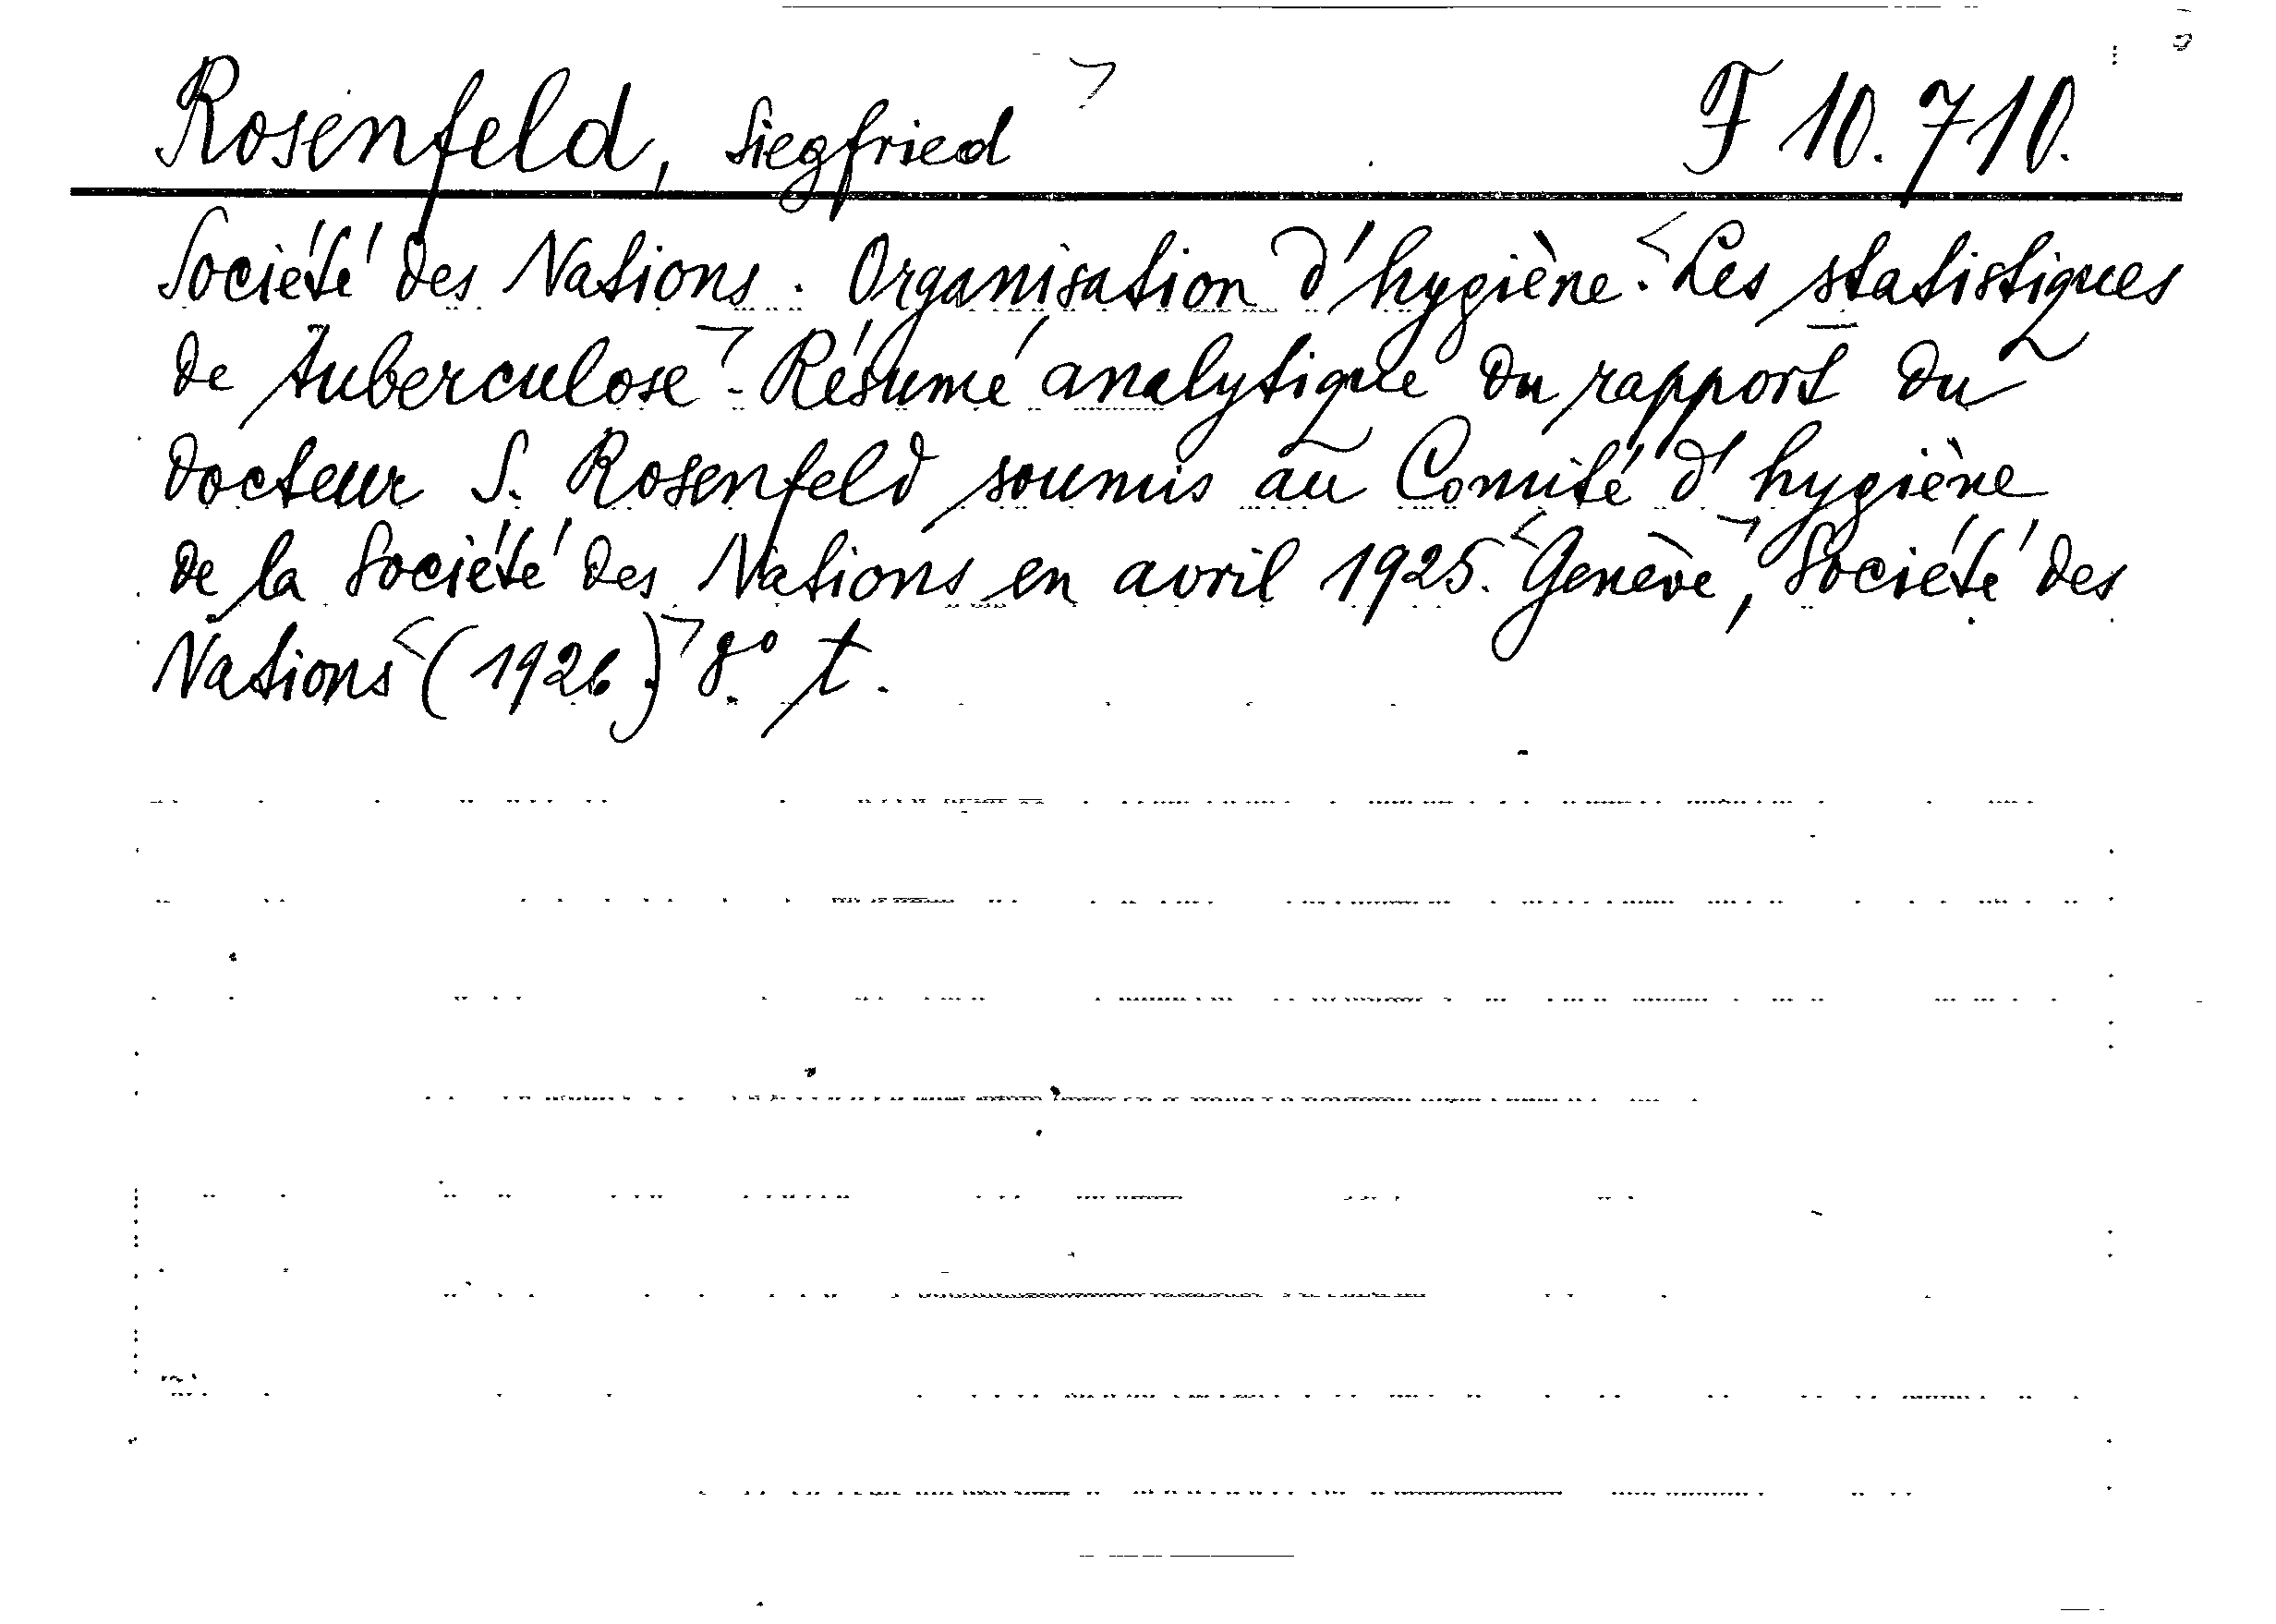 Rosenfeld, Siegfried F 10.710.
Société des Nations. Organisation d'hygiène. Les statistiques
de tuberculose. Résumé analytique du rapport du
docteur S. Rosenfeld soumis au Comité d'hygiène
de la Société des Nations en avril 1925. Genève, Société des
Nations (1926.) 8° t.